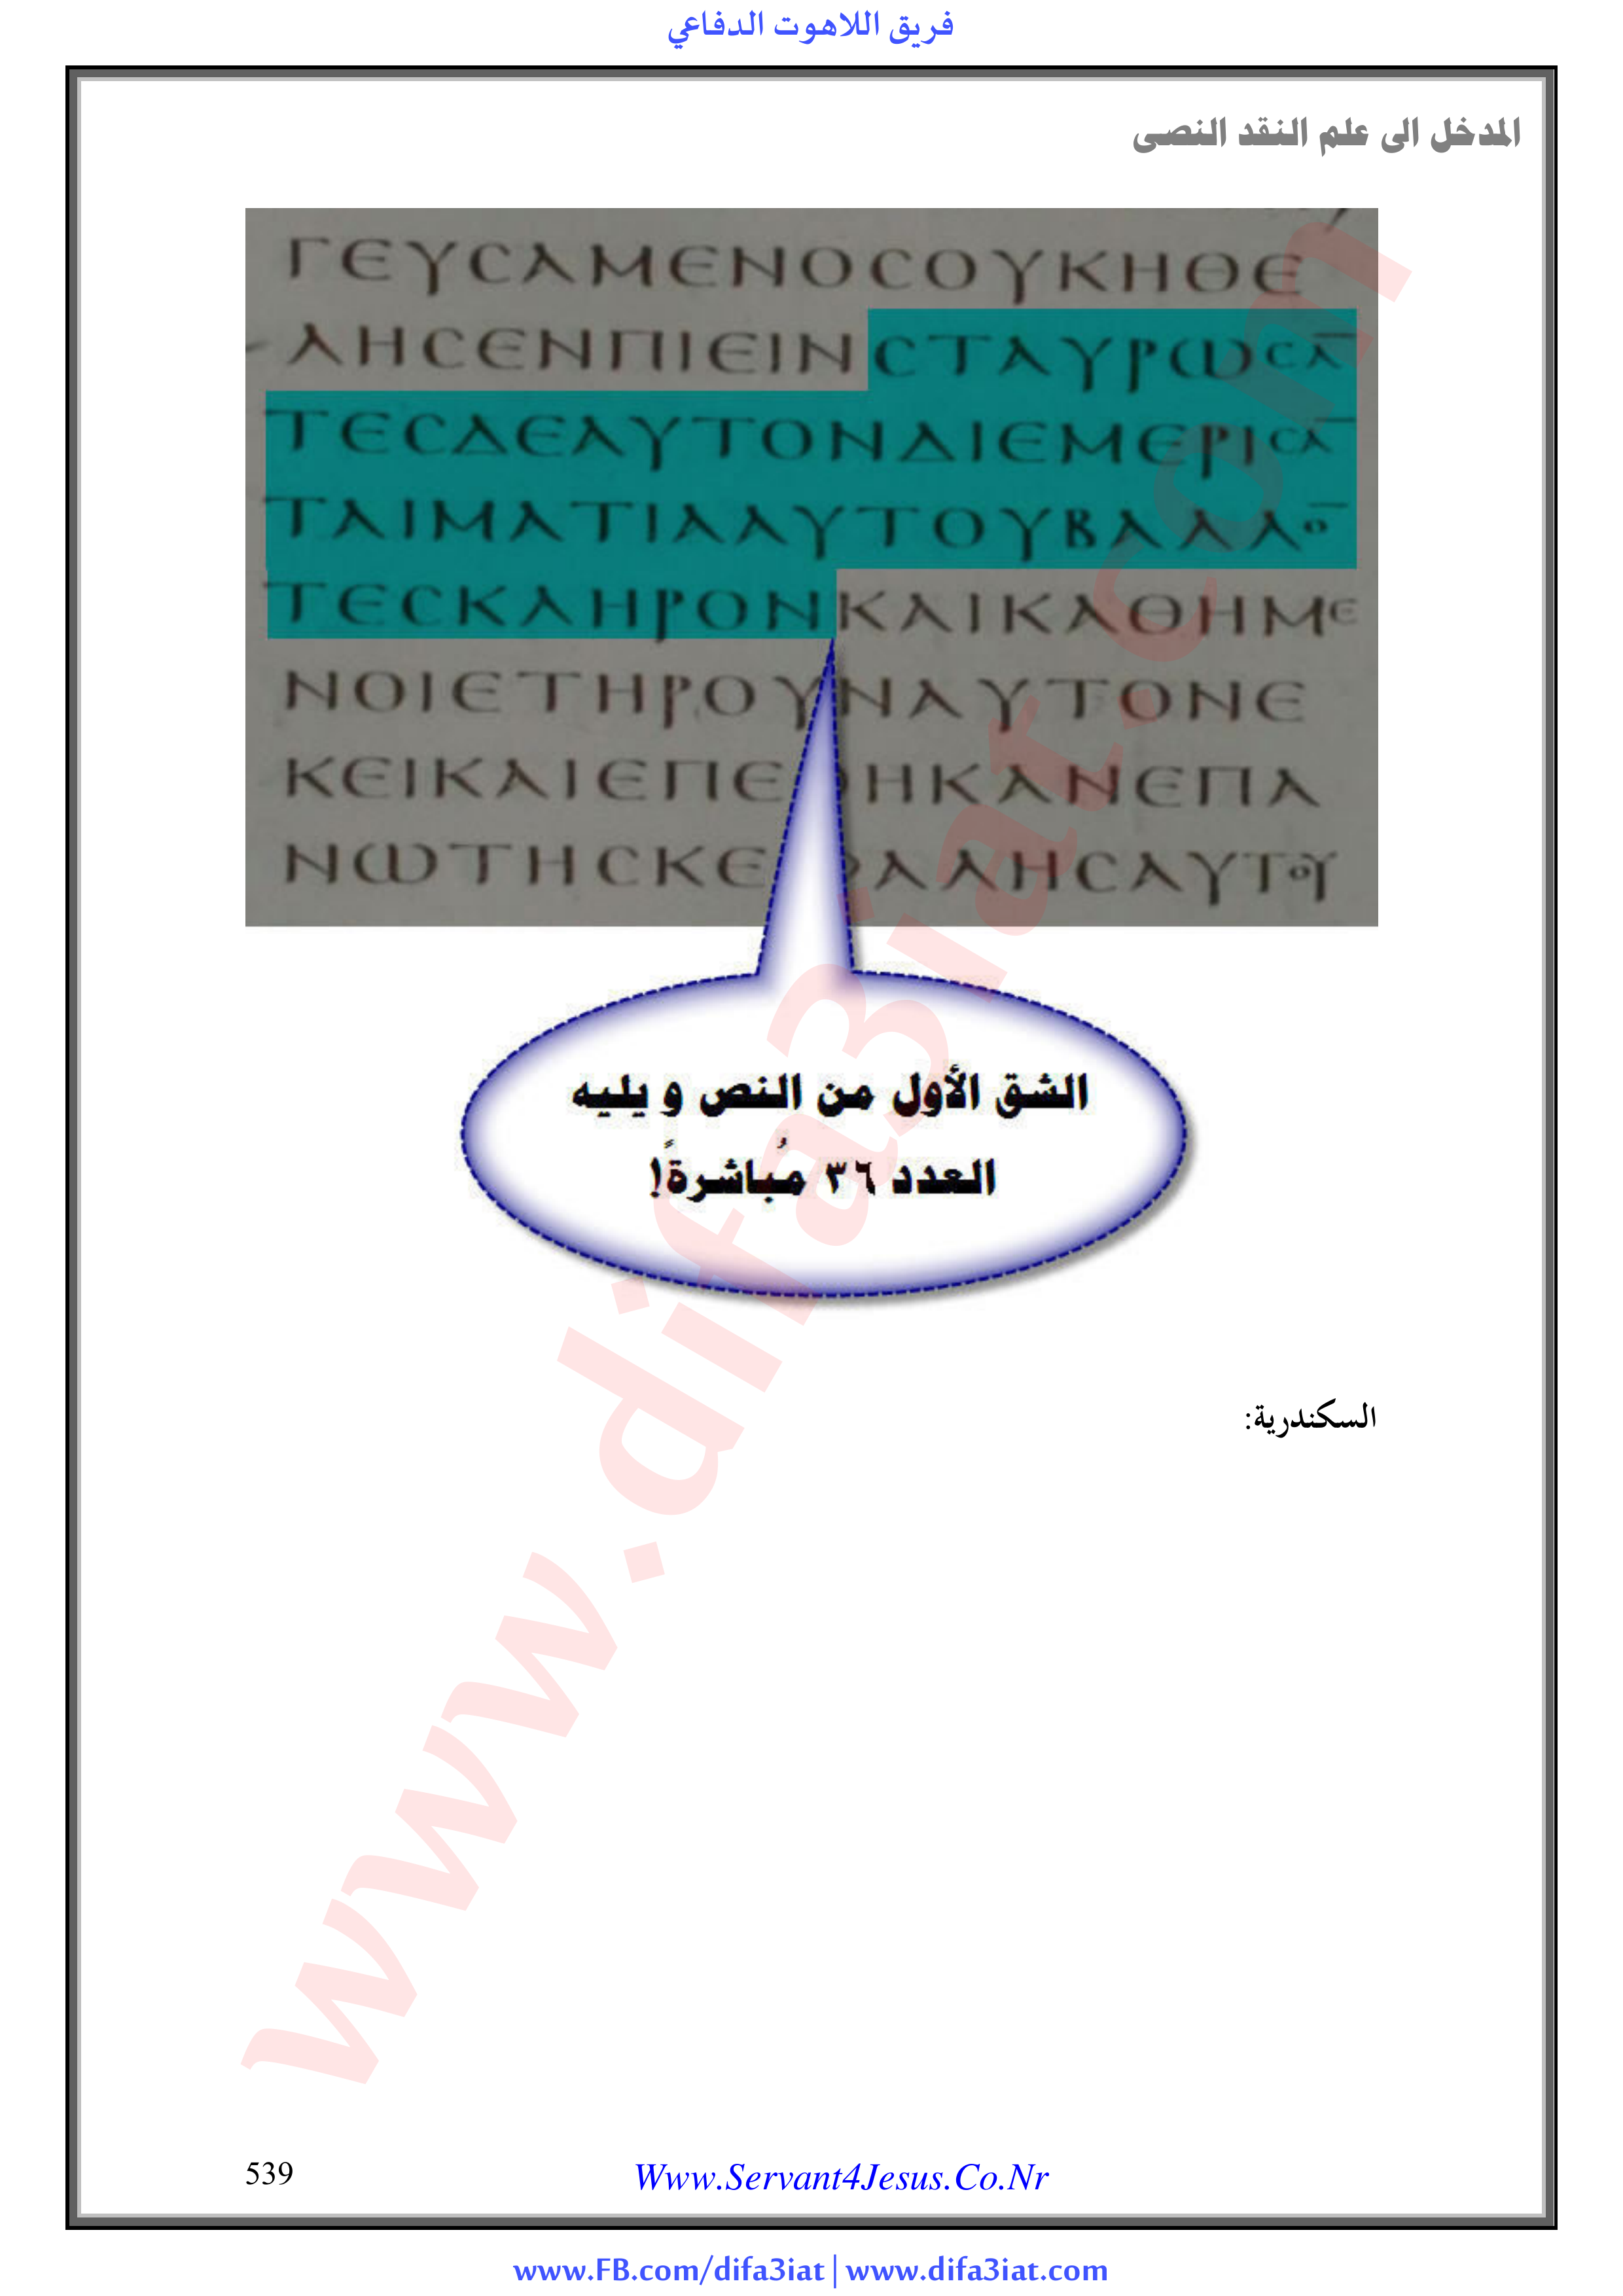 فريق اللاهوت الدفاعي
المدخل الى علم النقد النصى
ΓΕΥCΑΜΕΝΟCΟΥΚΗΘΕ
ΛΗCΕΝΠΙΕΙΝCΤΑΥΡΩCΑ̅
ΤΕCΔΕΑΥΤΟΝΔΙΕΜΕΡΙCΑ̅
ΤΑΙΜΑΤΙΑΑΥΤΟΥΒΑΛΛΟ̅
ΤΕCΚΛΗΡΟΝΚΑΙΚΑΘΗΜΕ
ΝΟΙΕΤΗΡΟΥΝΑΥΤΟΝΕ
ΚΕΙΚΑΙΕΠΕΘΗΚΑΝΕΠΑ
ΝΩΤΗCΚΕΦΑΛΗCΑΥΤΟΥ
الشق الأول من النص و يليه
العدد ٣٦ مُباشرةً!
السكندرية:
www.difa3iat.com
539
Www.Servant4Jesus.Co.Nr
www.FB.com/difa3iat | www.difa3iat.com